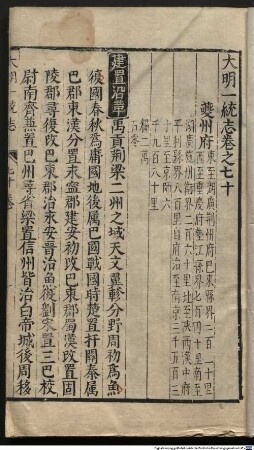 大明一統志卷之七十
夔州府
東至湖廣荆州府巴東縣界二百二十里
西至重慶府墊江縣界七百四十里南至
湖廣
平利縣界八百里自府治至南京三千五百三
十里至京師六
千九百八十里
編
五里
建置沿革
禹貢荆梁二州之域天文翼軫分野周初為魚
復國春秋為庸國地後屬巴國戰國時楚置扞關秦屬
巴郡東漢分置永寧郡建安初改巴東郡蜀漢改置固
陵郡尋復改巴東郡治永安晉治魚復劉宋置三巴校
尉南齊兼置巴州尋省梁置信州皆治白帝城後周移
大明一統志
七十卷